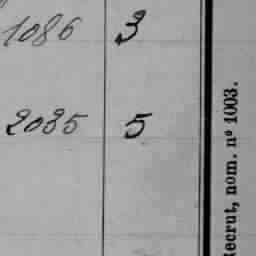 1086 3
2035 5
Recrut, nom. nº 1003.